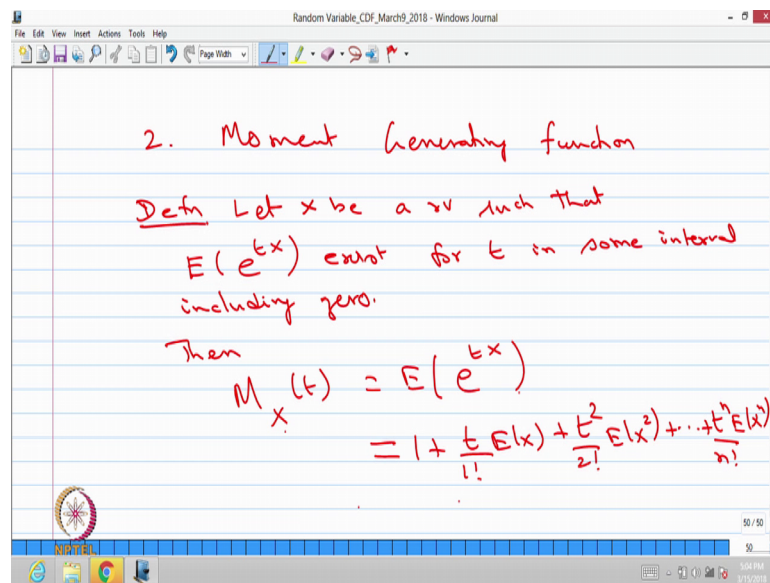 Random Variable_CDF_March9_2018 - Windows Journal
File Edit View Insert Actions Tools Help
Page Width
2. Moment Generating function
Defn Let x be a rv such that
E(e^{tx}) exist for t in some interval
including zero.
Then
M_X(t) = E(e^{tx})
= 1 + \frac{t}{1!} E(x) + \frac{t^2}{2!} E(x^2) + ... + \frac{t^n E(x^n)}{n!}
NPTEL
50 / 50
50
5:04 PM
3/15/2018